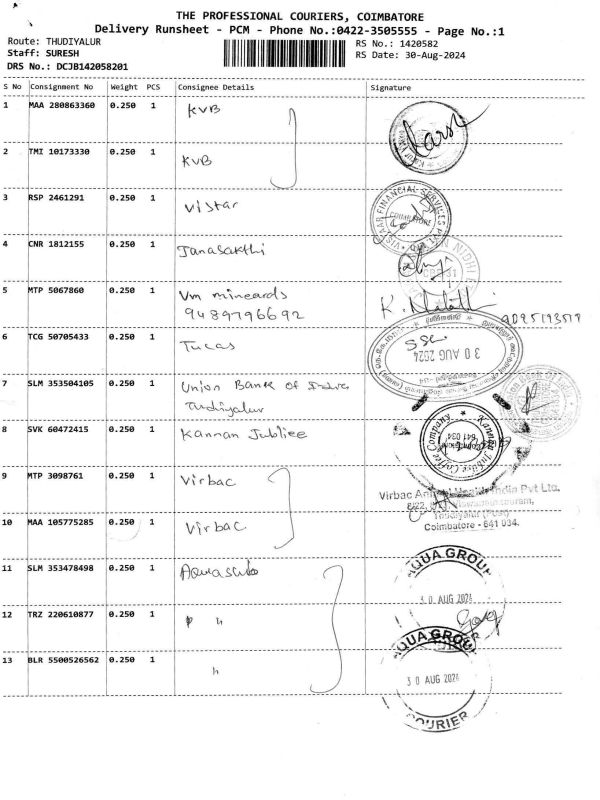 THE PROFESSIONAL COURIERS, COIMBATORE
Delivery Runsheet - PCM - Phone No.:0422-3505555 - Page No.:1
Route: THUDIYALUR
Staff: SURESH
DRS No.: DCJB142058201
RS No.: 1420582
RS Date: 30-Aug-2024
S No Consignment No Weight PCS Consignee Details Signature
1 MAA 280863360 0.250 1 KVB
2 TMI 10173330 0.250 1 KVB
3 RSP 2461291 0.250 1 Vistar
VISTAAR FINANCIAL SERVICES PVT
COIMBATORE
4 CNR 1812155 0.250 1 Janasakthi
NIDHI
5 MTP 5067860 0.250 1 Vm mineards
9489796692
K. Malathi
9095193519
6 TCG 50705433 0.250 1 Tucas
SSC
30 AUG 2024
7 SLM 353504105 0.250 1 Union Bank of India
Tudiyalur
8 SVK 60472415 0.250 1 Kannan Jubliee
Kannan Jubilee Coffee Company
641 034
9 MTP 3098761 0.250 1 Virbac
Virbac Animal Health India Pvt Ltd.
Thudiyalur (Post)
Coimbatore - 641 034.
10 MAA 105775285 0.250 1 Virbac
11 SLM 353478498 0.250 1 Aquasub
AQUA GROUP
30 AUG 2024
12 TRZ 220610877 0.250 1 " "
13 BLR 5500526562 0.250 1 "
AQUA GROUP
30 AUG 2024
COURIER